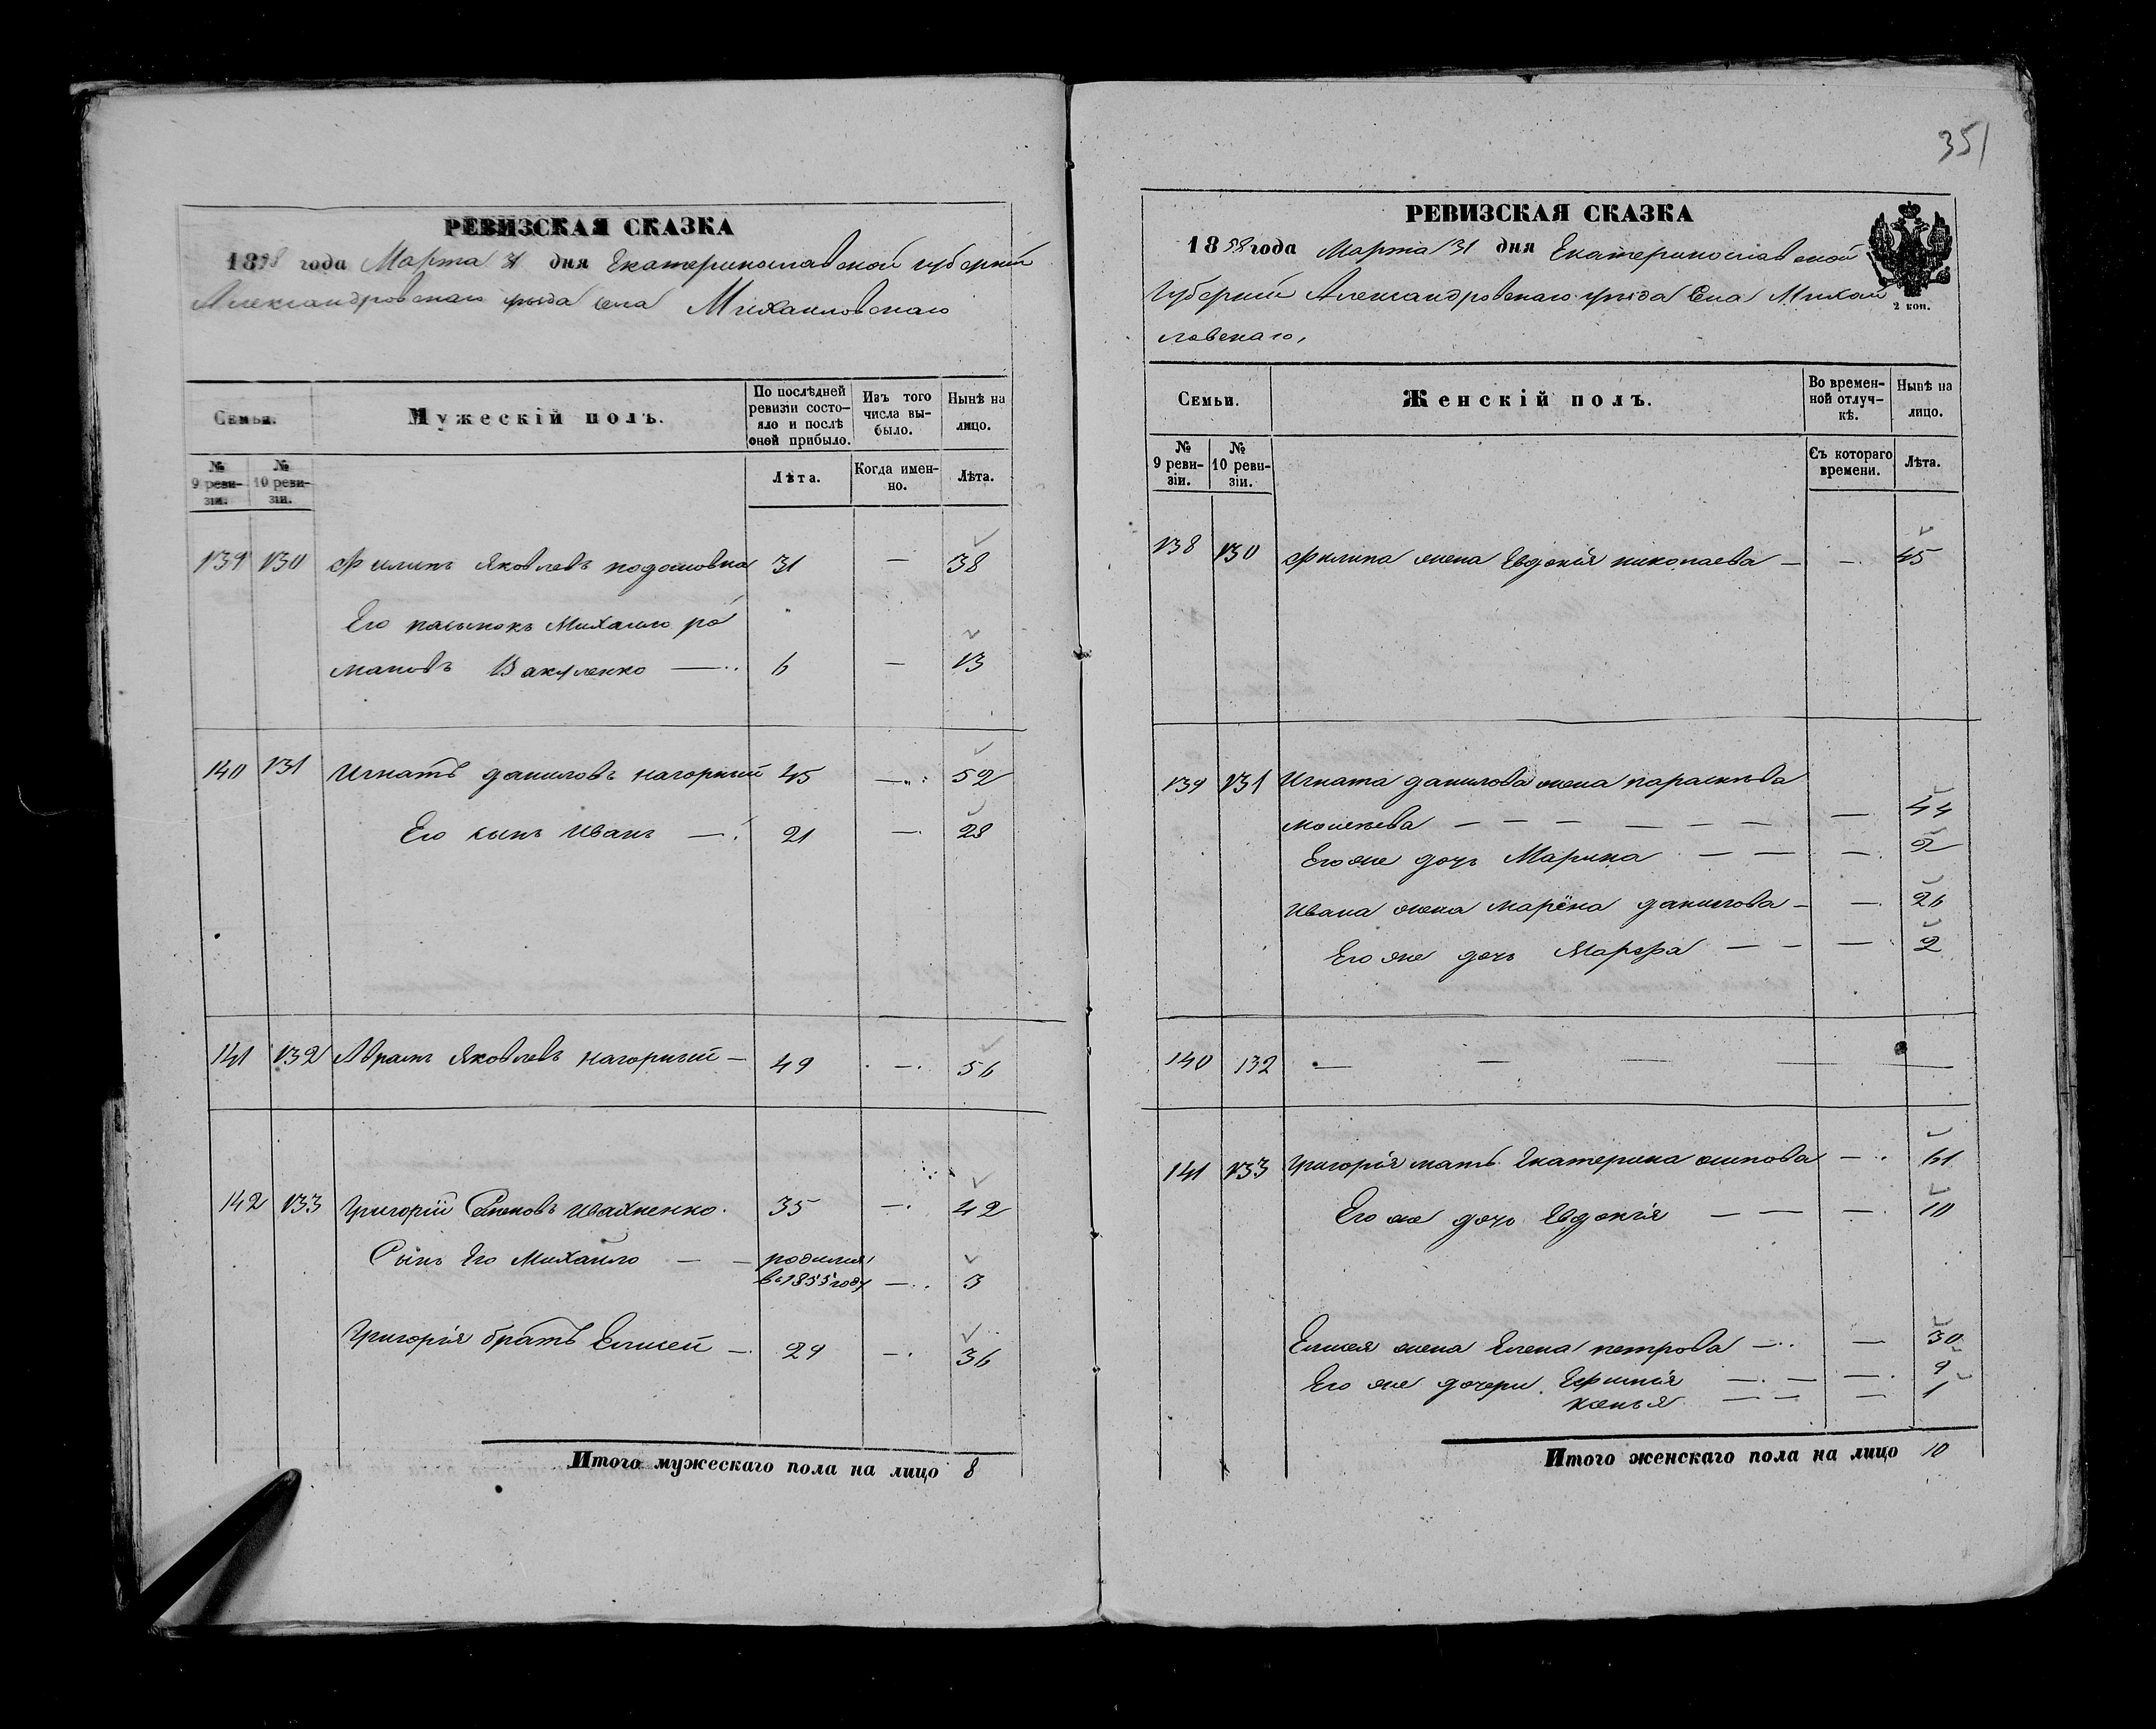 351
РЕВИЗСКАЯ СКАЗКА
1858 года Марта 31 дня Екатеринославской губернии
Александровскаго уезда села Михайловскаго
Семьи.
Мужескій полъ.
По послѣдней ревизіи состояло и послѣ оной прибыло.
Изъ того числа выбыло.
Нынѣ на лицо.
№ 9 ревизіи.
№ 10 ревизіи.
Лѣта.
Когда именно.
Лѣта.
139 130 Филипъ Яковлевъ 31 — 38
Его пасынокъ Михайло Ро
мановъ Вакуленко — 6 — 13
140 131 Игнатъ Даниловъ Нагорный 45 — 52
Его сынъ Иванъ — 21 — 28
141 132 Аврамъ Яковлевъ Нагорный — 49 — 56
142 133 Григорій Семеновъ Ивахненко. 35 — 42
Сынъ Его Михайло — — родился
в 1855 году — 3
Григорія братъ Елисей — 29 — 36
Итого мужескаго пола на лицо 8
РЕВИЗСКАЯ СКАЗКА
1858 года Марта 31 дня Екатеринославской
Губерніи Александровскаго уезда Села Михай
ловскаго,
2 коп.
Семьи.
Женскій полъ.
Во временной отлучкѣ.
Нынѣ на лицо.
№ 9 ревизіи.
№ 10 ревизіи.
Съ котораго времени.
Лѣта.
138 130 Филипа жена Евдокія Николаева — — 45
139 131 Игната Данилова жена Параскѣва
Мосѣева — — — — — — — 44
Его же дочь Марина — — — 2
Ивана жена Марёна Данилова — — 26
Его же дочь Марфа — — — 2
140 132 — — — — —
141 133 Григорія мать Екатерина Осипова — 61
Его же дочь Евдокія — — — 10
Елисея жена Елена Петрова — — 30
Его же дочери Ефимія — — — 9
Ксенья — — — 1
Итого женскаго пола на лицо 10